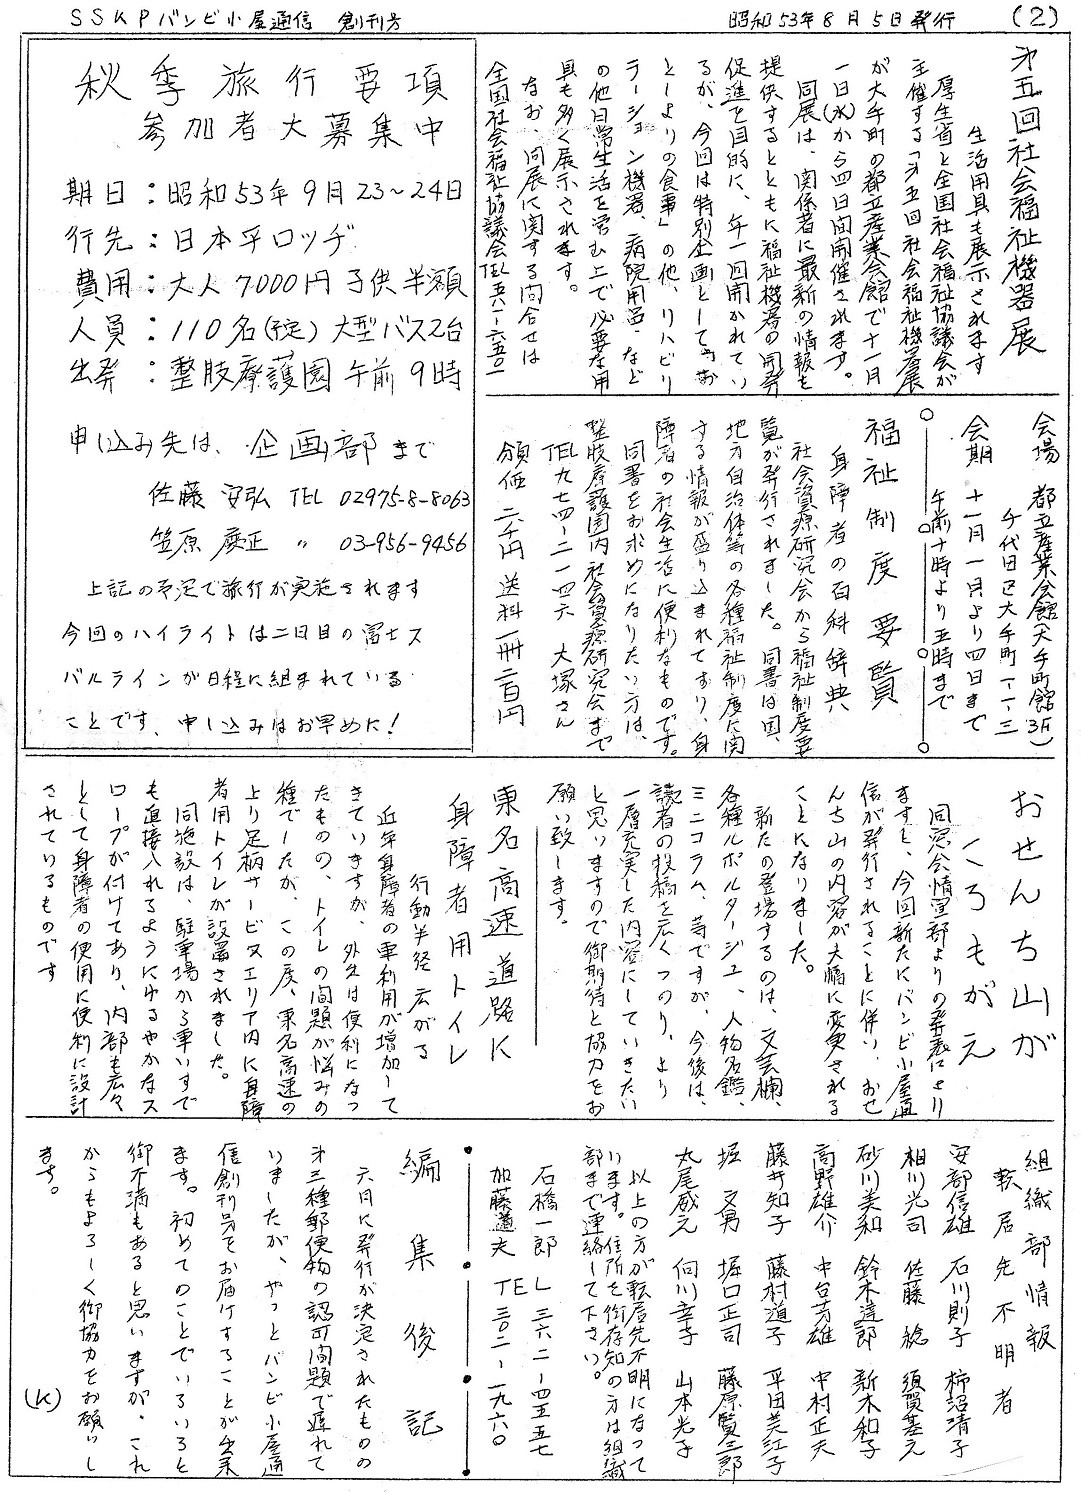 SSKPバンビ小屋通信 創刊号
昭和53年8月5日発行
(2)
秋季旅行要項
参加者大募集中
期日:昭和53年9月23~24日
行先:日本平ロッヂ
費用:大人7000円子供半額
人員:110名(予定)大型バス2台
出発:整肢療護園午前9時
申し込み先は、企画部まで
佐藤 安弘 TEL 02975-8-8063
笠原 慶正 〃 03-956-9456
上記の予定で旅行が実施されます
今回のハイライトは二日目の富士ス
バルラインが日程に組まれている
ことです、申し込みはお早めに!
第五回社会福祉機器展
生活用具も展示されます
厚生省と全国社会福祉協議会が
主催する「第五回社会福祉機器展
が大手町の都立産業会館で十一月
一日(水)から四日間開催されます。
同展は、関係者に最新の情報を
提供するとともに福祉機器の開発
促進を目的に、年一回開かれてい
るが、今回は特別企画として「お
としよりの食事」の他、リハビリ
ラーション機器、病院用品など
の他日常生活を営む上で必要な用
具も多く展示されます。
なお、同展に関する問合せは
全国社会福祉協議会TEL五八一-六五〇一
会場 都立産業会館(大手町館3F)
千代田区大手町一-一-三
会期 十一月一日より四日まで
午前十時より五時まで
福祉制度要覧
身障者の百科辞典
社会資源研究会から福祉制度要
覧が発行されました。同書は国、
地方自治体等の各種福祉制度に関
する情報が盛り込まれてすり、身
障者の社会生活に便利なものです。
同書をお求めになりたい方は、
整肢療護園内社会資源研究会まで
TEL九七四-二一四六 大塚さん
領価 二千円 送料一冊二百円
おせんち山が
ころもがえ
同窓会情宣部よりの発表により
ますと、今回新たにバンビ小屋通
信が発行されることに併い、おせ
んち山の内容が大幅に変更される
ことになりました。
新たの登場するのは、文芸欄、
各種ルポルタージュ、人物名鑑、
ミニコラム、等ですが、今後は、
読者の投稿を広くつのり、より
一層充実した内容にしていきたい
と思いますので御期待と協力をお
願い致します。
東名高速道路に
身障者用トイレ
行動半径広がる
近年身障者の車利用が増加して
きていますが、外出は便利になっ
たものの、トイレの問題が悩みの
種でしたが、この度、東名高速の
上り足柄サービスエリア内に身障
者用トイレが設置されました。
同施設は、駐車場から車いすで
も直接入れるようにゆるやかなス
ロープが付けてあり、内部も広々
として身障者の使用に便利に設計
されているものです
組織部情報
転居先不明者
安部信雄 石川則子 柿沼清子
相川光司 佐藤 稔 須賀基元
砂川美和 鈴木達郎 新木和子
高野雄介 中台芳雄 中村正夫
藤井知子 藤村道子 平田美江子
堀 文男 堀口正司 藤原賢三郎
丸尾威元 向川幸子 山本光子
以上の方が転居先不明になって
います。住所を御存知の方は組織
部まで連絡して下さい。
石橋一郎 TEL 三六二-四五五七
加藤道夫 TEL 三〇二-一九六〇
編集後記
六月に発行が決定されたものの
第三種郵便物の認可問題で遅れて
いましたが、やっとバンビ小屋通
信創刊号をお届けすることが出来
ます。初めてのことでいろいろと
御不満もあると思いますが、これ
からもよろしく御協力をお願いし
ます。
(K)